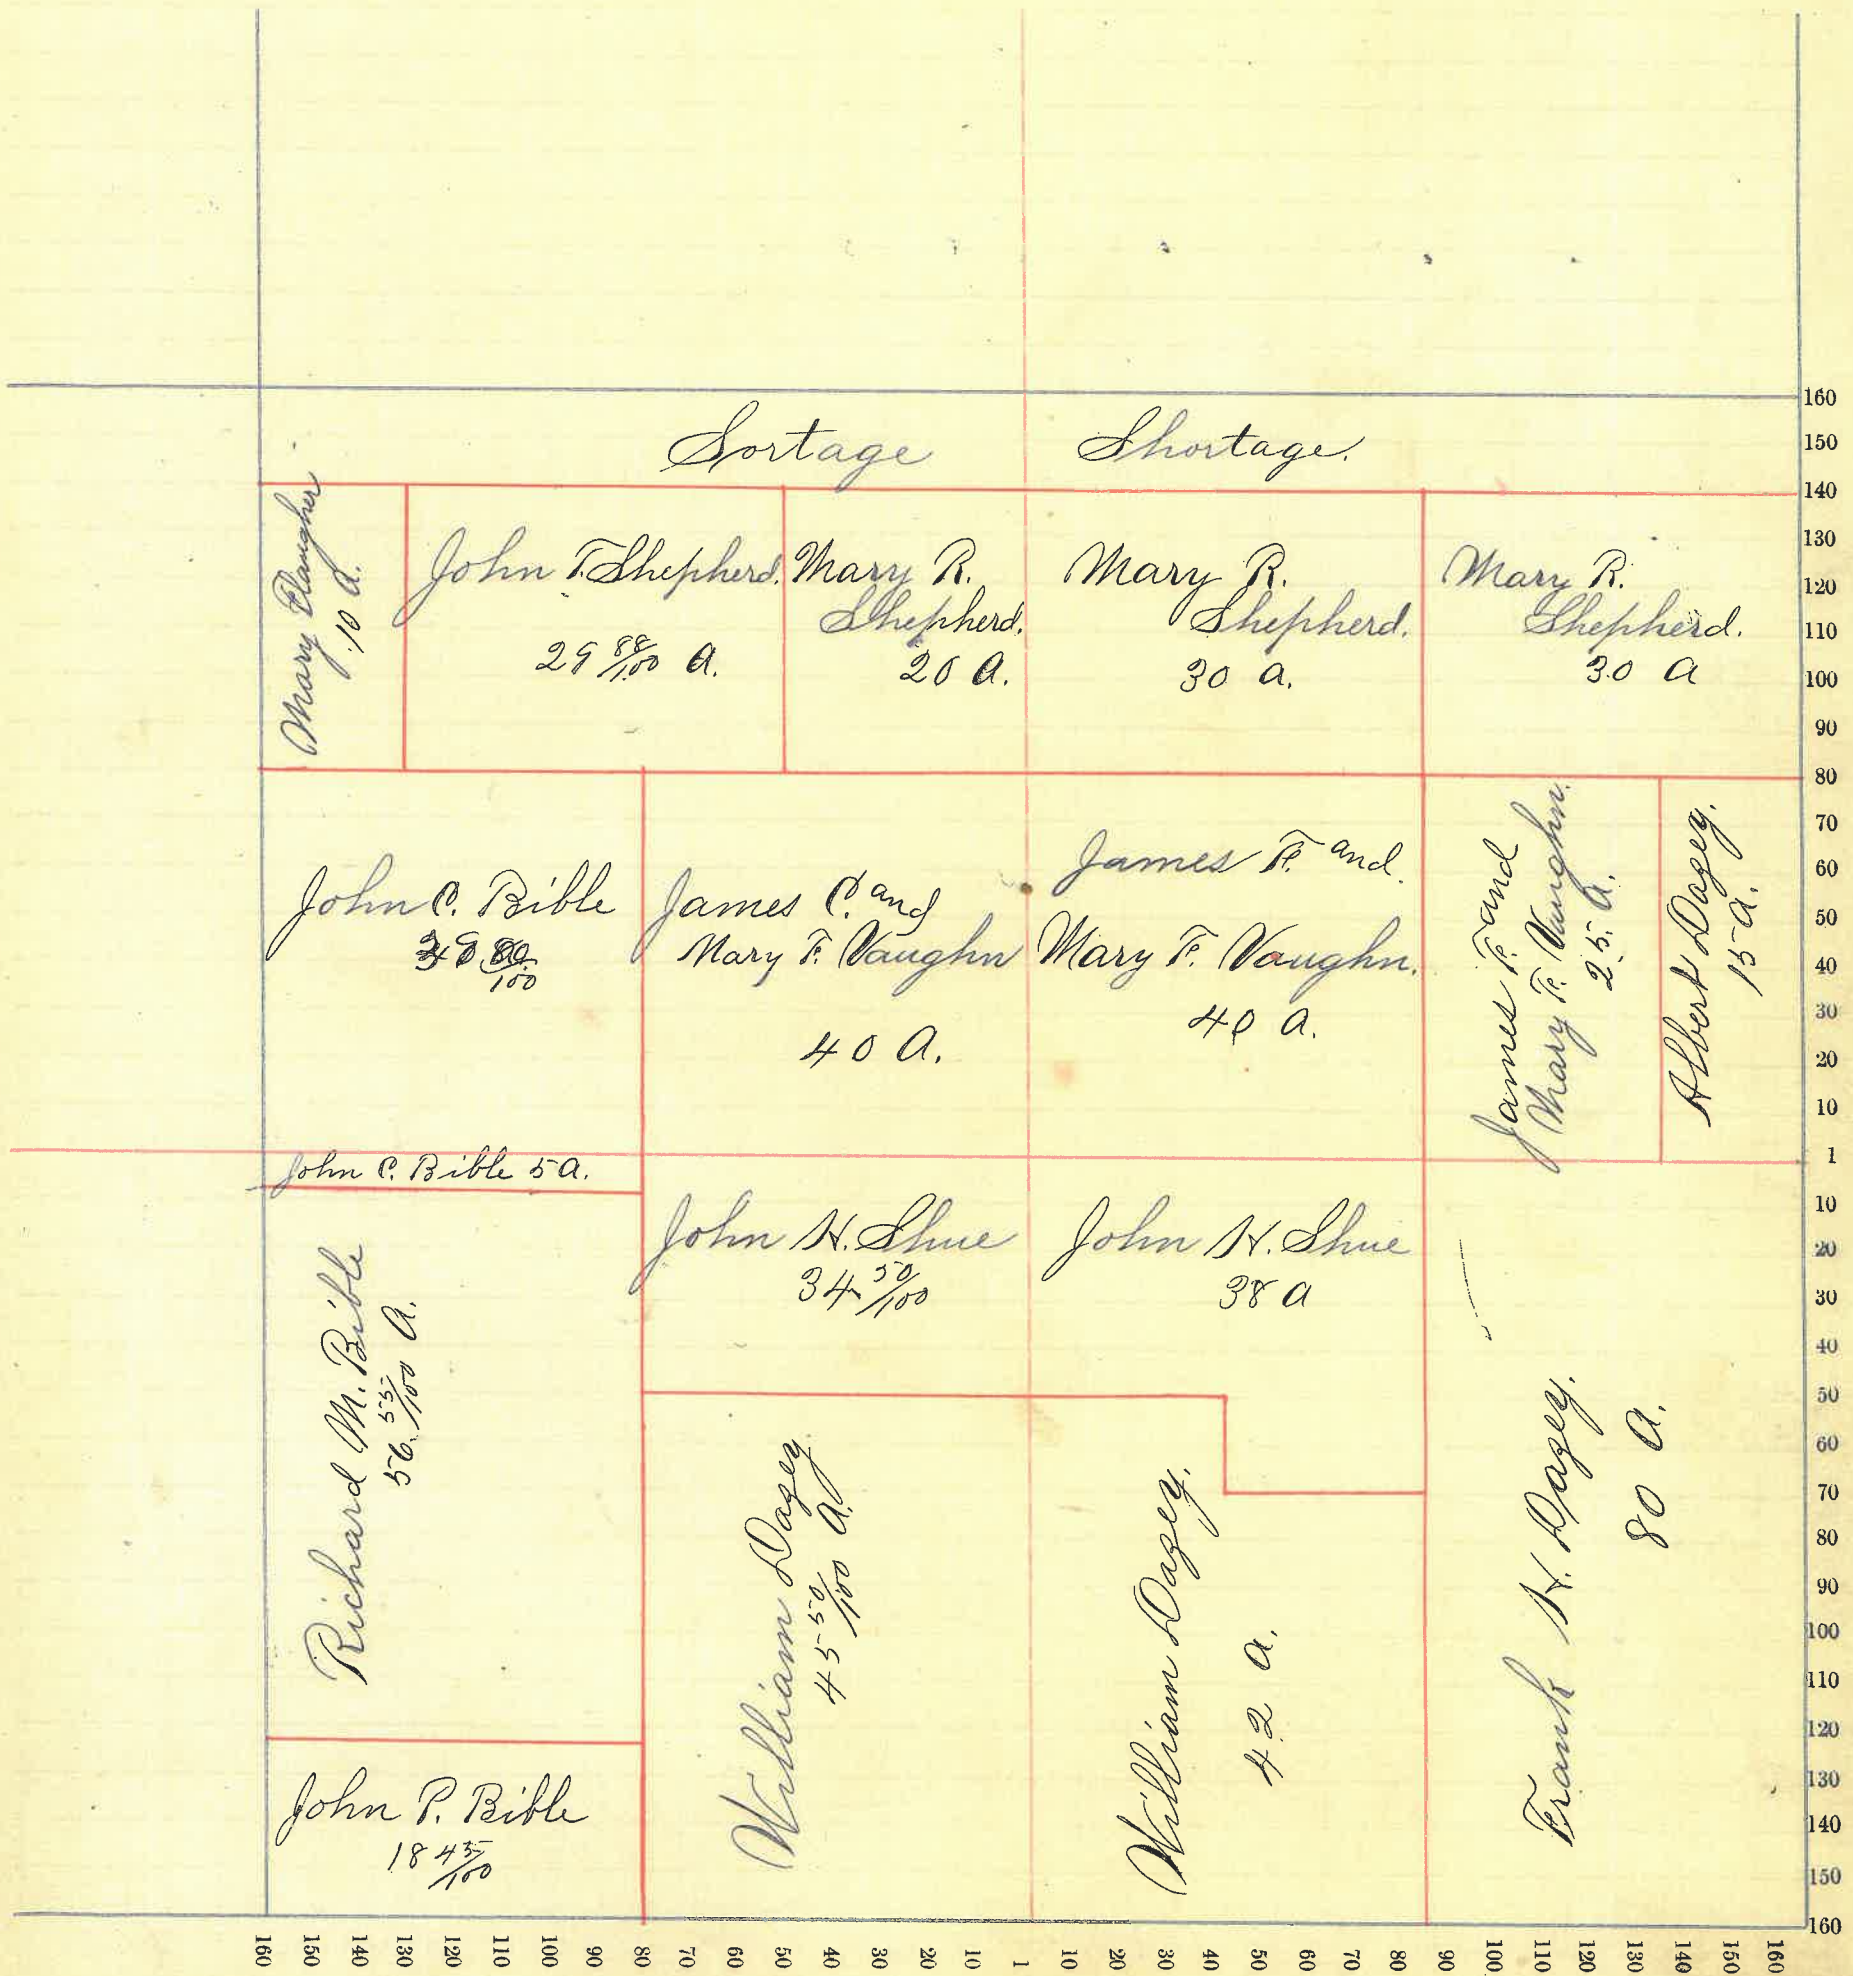 Sortage Shortage.
Mary
10 a.
John T. Shepherd.
29 88/100 A.
Mary R.
Shepherd.
20 A.
Mary R.
Shepherd.
30 a.
Mary R.
Shepherd.
30 a
John C. Bible
80/100
James C. and
Mary F. Vaughn
40 A.
James F. and.
Mary F. Vaughn.
40 A.
James F. and
Mary F. Vaughn.
25. a.
Albert Dazey.
15 a.
John C. Bible 5 a.
John H. Shue
34 50/100
John H. Shue
38 a
Richard M. Bible
56. 55/100 a.
William Dazey
45 50/100 a.
William Dazey.
42 a.
Frank H. Dazey.
80 a.
John P. Bible
18 45/100
160
150
140
130
120
110
100
90
80
70
60
50
40
30
20
10
1
10
20
30
40
50
60
70
80
90
100
110
120
130
140
150
160
160 150 140 130 120 110 100 90 80 70 60 50 40 30 20 10 1 10 20 30 40 50 60 70 80 90 100 110 120 130 140 150 160